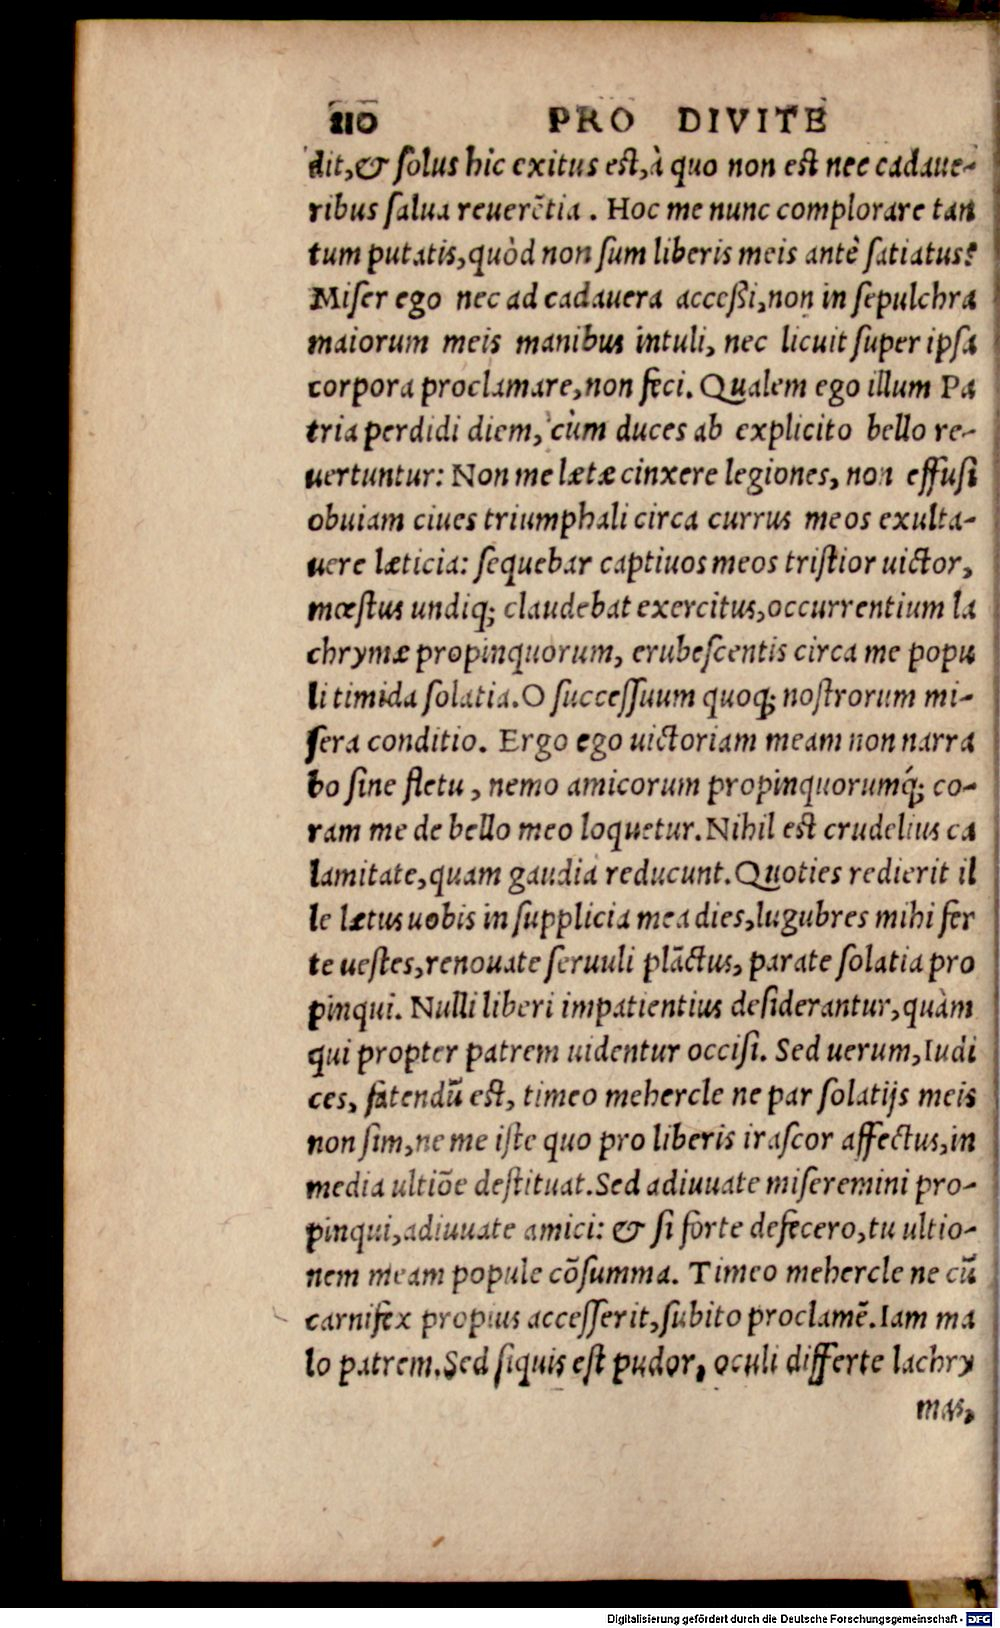 110 PRO DIVITE
dit,& solus hic exitus est,à quo non est nec cadaue-
ribus salua reuerẽtia . Hoc me nunc complorare tan
tum putatis,quòd non sum liberis meis antè satiatus?
Miser ego nec ad cadauera accessi,non in sepulchra
maiorum meis manibus intuli, nec licuit super ipsa
corpora proclamare,non feci. Qualem ego illum Pa
tria perdidi diem, cùm duces ab explicito bello re-
uertuntur: Non me lætæ cinxere legiones, non effusi
obuiam ciues triumphali circa currus meos exulta-
uere læticia: sequebar captiuos meos tristior uictor,
mœstus undiq; claudebat exercitus,occurrentium la
chrymæ propinquorum, erubescentis circa me popu
li timida solatia. O successuum quoq; nostrorum mi-
sera conditio. Ergo ego uictoriam meam non narra
bo sine fletu , nemo amicorum propinquorumq́; co-
ram me de bello meo loquetur. Nihil est crudelius ca
lamitate,quam gaudia reducunt. Quoties redierit il
le lætus uobis in supplicia mea dies,lugubres mihi fer
te uestes,renouate seruuli plãctus, parate solatia pro
pinqui. Nulli liberi impatientius desiderantur,quàm
qui propter patrem uidentur occisi. Sed uerum,Iudi
ces, fatendũ est, timeo mehercle ne par solatijs meis
non sim,ne me iste quo pro liberis irascor affectus,in
media ultiõe destituat. Sed adiuuate miseremini pro-
pinqui,adiuuate amici: & si forte defecero,tu ultio-
nem meam popule cõsumma. Timeo mehercle ne cũ
carnifex propius accesserit,subito proclamẽ. Iam ma
lo patrem. Sed siquis est pudor, oculi differte lachry
mas,
Digitalisierung gefördert durch die Deutsche Forschungsgemeinschaft - DFG